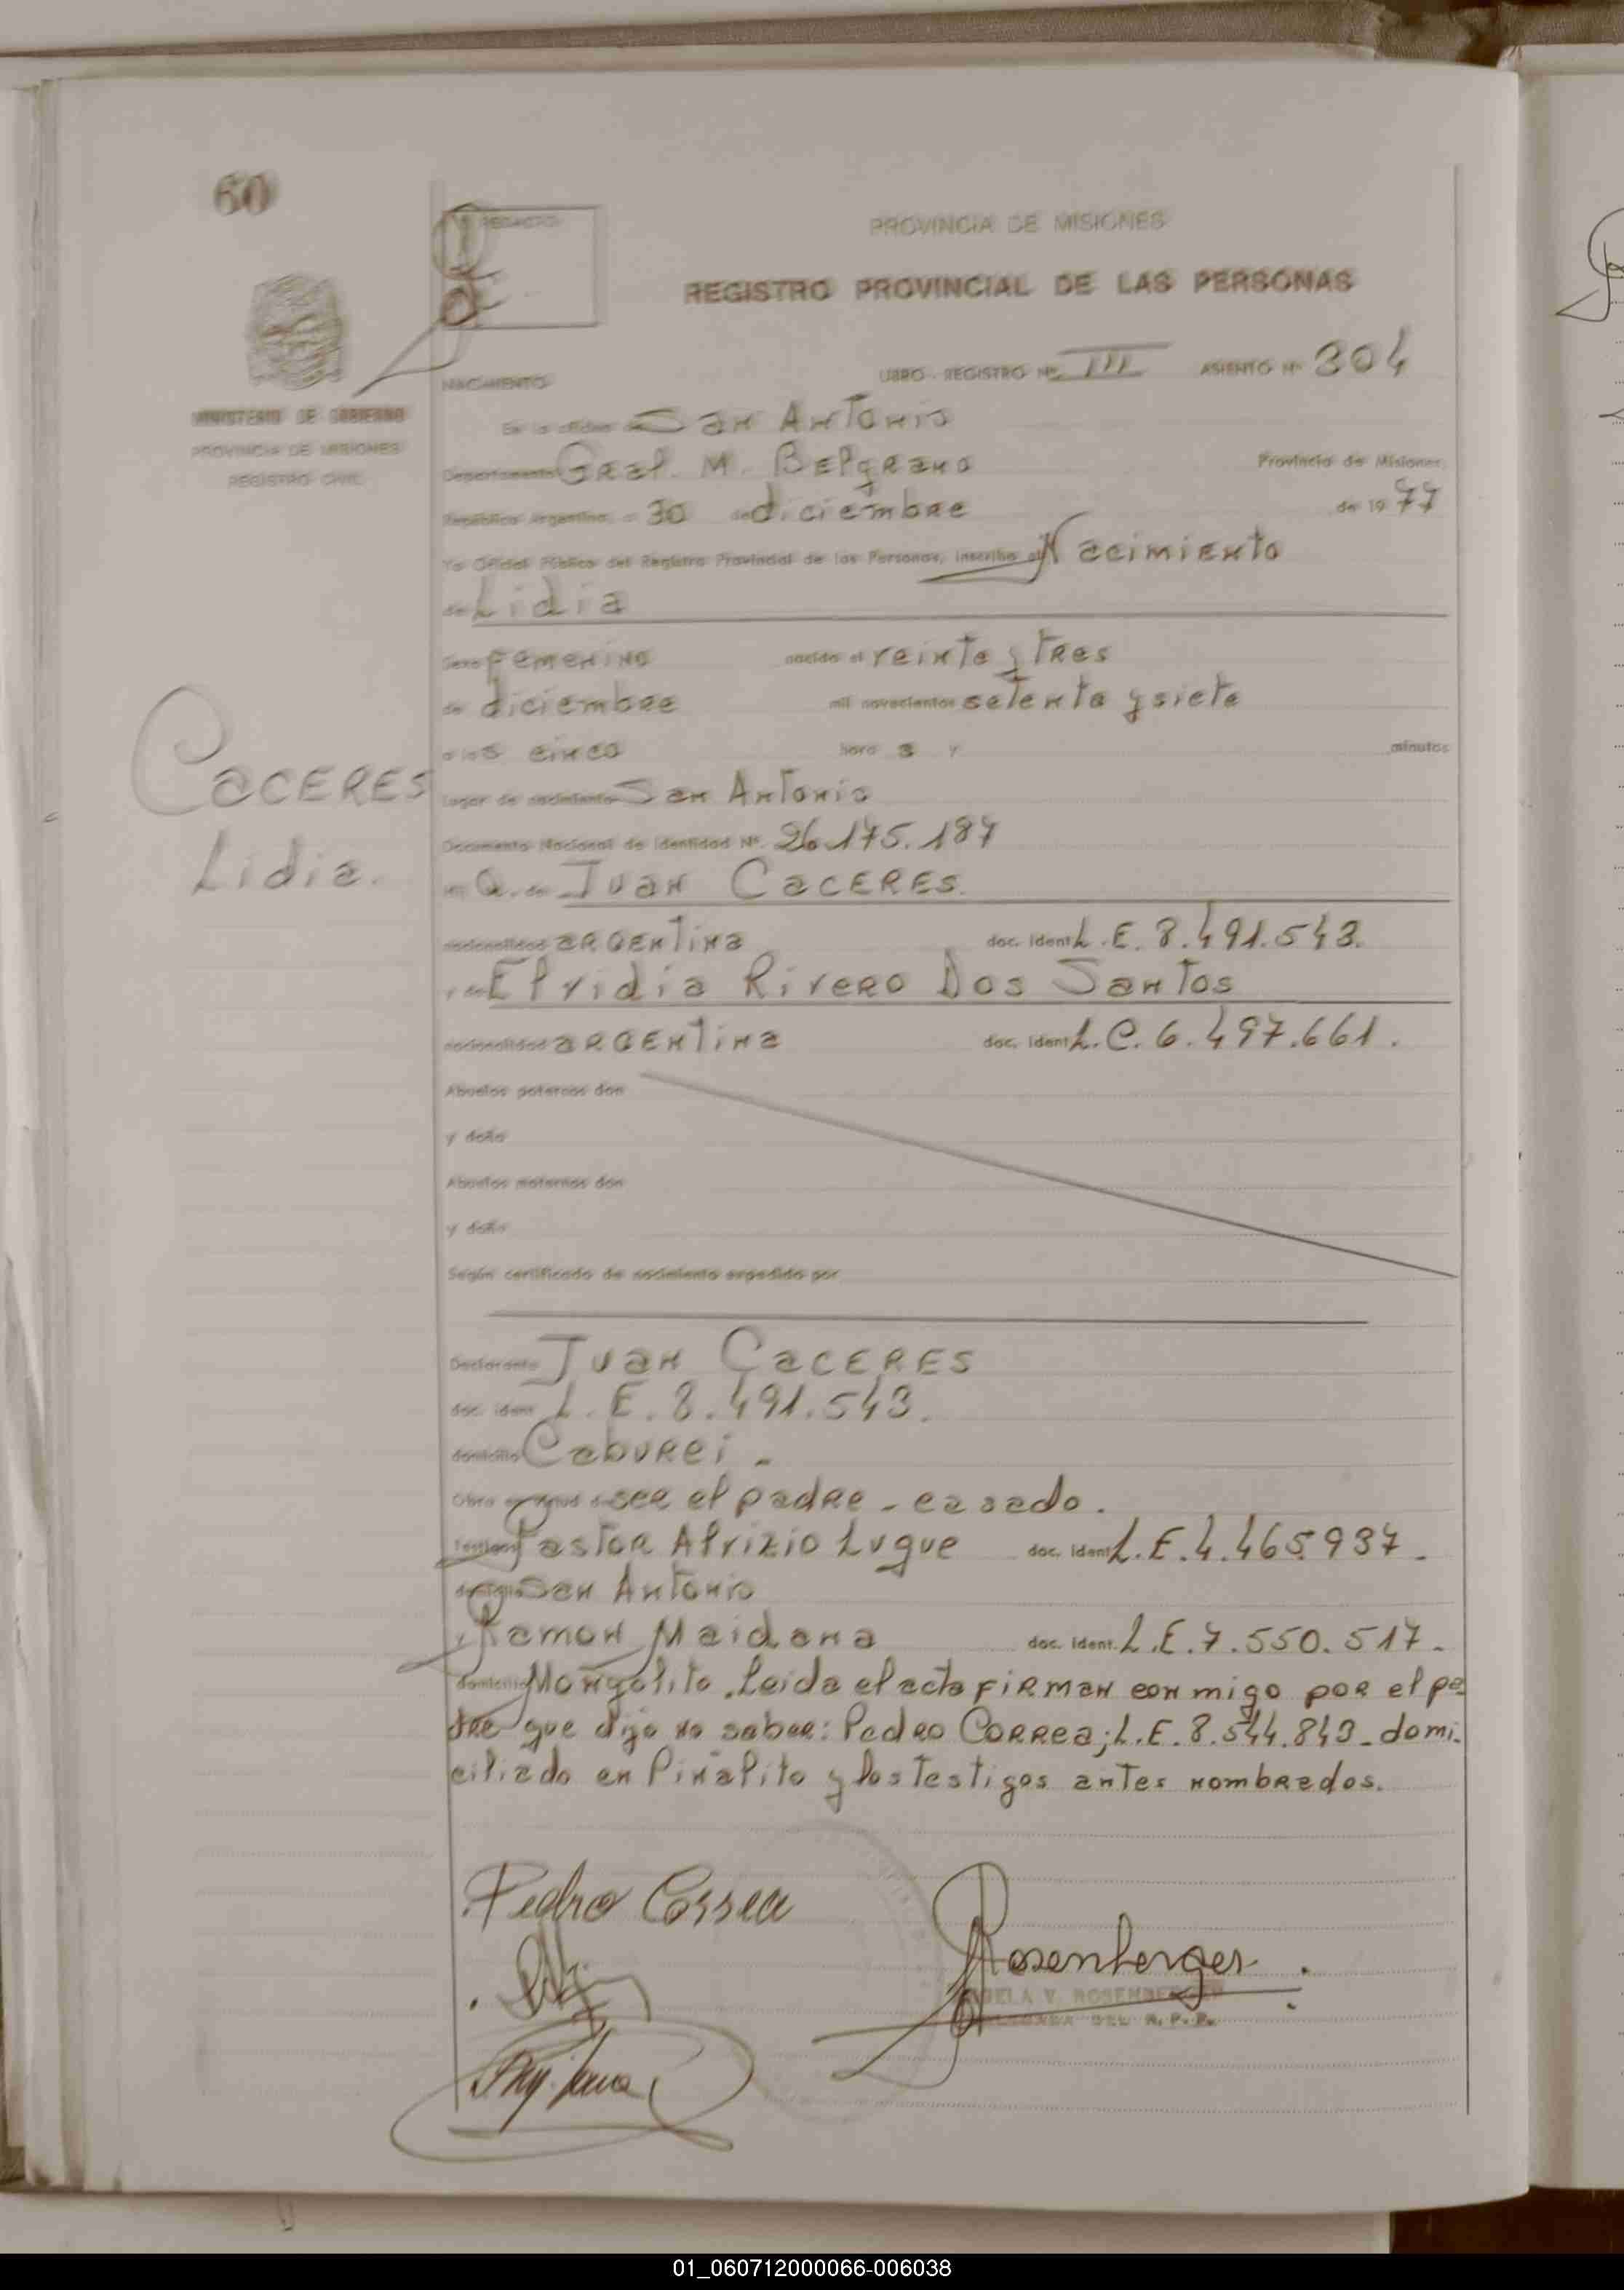 60
REDACTO:
PROVINCIA DE MISIONES
REGISTRO PROVINCIAL DE LAS PERSONAS
MINISTERIO DE GOBIERNO
PROVINCIA DE MISIONES
REGISTRO CIVIL
NACIMIENTO
LIBRO - REGISTRO Nº III ASIENTO Nº 304
En la oficina de San Antonio
Departamento Gral. M. Belgrano Provincia de Misiones,
República Argentina, a 30 de diciembre de 19 77
Yo Oficial Público del Registro Provincial de las Personas, inscribo el Nacimiento
de Lidia
Sexo femenino nacido el veinte y tres
de diciembre mil novecientos setenta y siete
a las cinco hora s y minutos
Lugar de nacimiento San Antonio
Documento Nacional de Identidad Nº. 26.175.187
Caceres
Lidia.
de Juan Caceres.
nacionalidad argentina doc. ident L.E. 8.491.543.
y de Elvidia Rivero Dos Santos
nacionalidad argentina doc. ident L.C. 6.497.661.
Abuelos paternos don
y doña
Abuelos maternos don
y doña
Según certificado de nacimiento expedido por
Declarante Juan Caceres
doc. ident L.E. 8.491.543.
domicilio Caburei.-
Obra en virtud de ser el padre - casado.
Testigos Pastor Alvizio Luque doc. ident L.E. 4.465.937.
domicilio San Antonio
y Ramon Maidana doc. ident. L.E. 7.550.517-
domicilio Moñgolito. Leida el acta firman conmigo por el pa
dre que dijo no saber: Pedro Correa; L.E. 8.544.843- domi.
ciliado en Piñalito y los testigos antes nombrados.
Pedro Correa
Rosenberger
ROSENBERGER
DEL R.P.P.
01_060712000066-006038